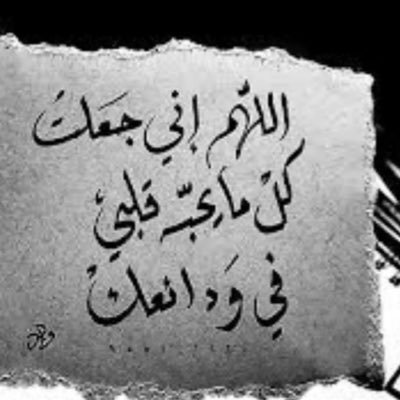 اللهم إني جعلت
كل ما يحبه قلبي
في ودائعك